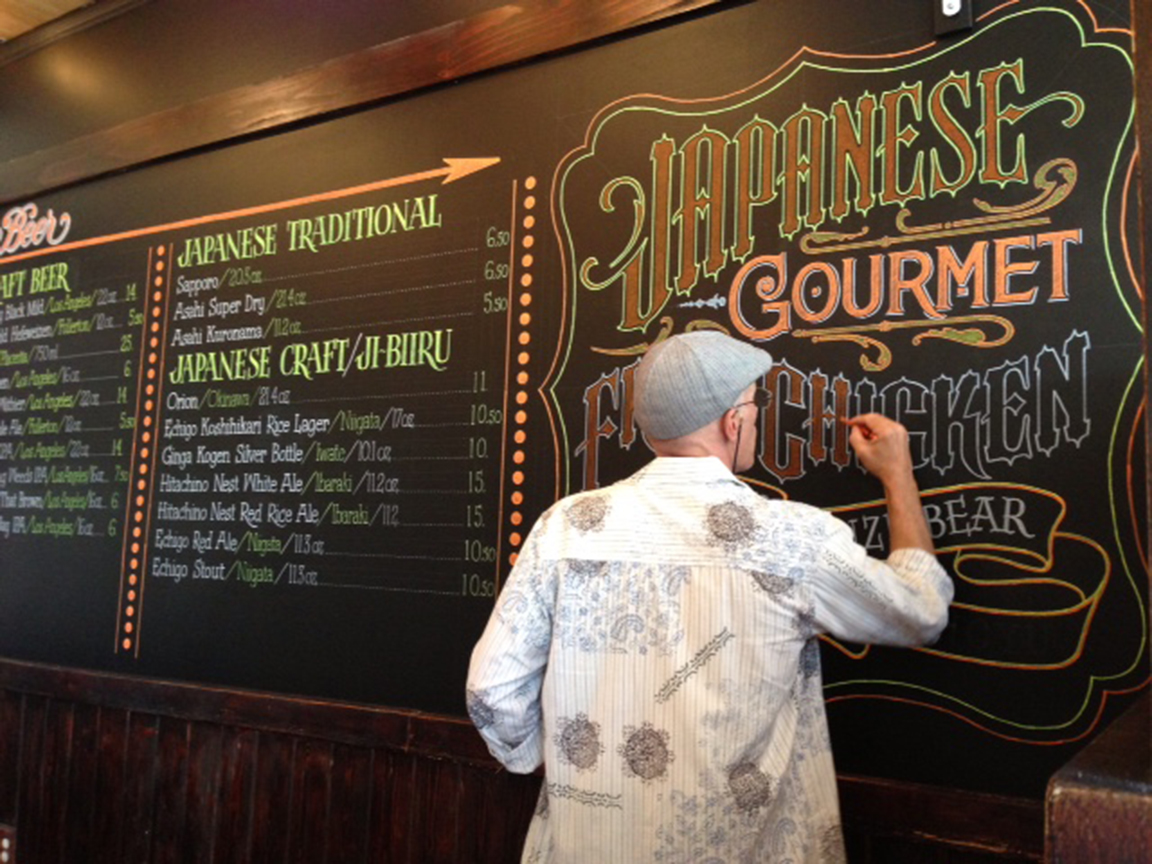 Beer
AFT BEER
Black Mild/Los Angeles/22oz 14
Hefeweizen/Fullerton/10oz... 5.50
/Placentia/750ml 25
/Los Angeles/16oz 6
/Los Angeles/22oz 14
Ale/Fullerton/10oz... 5.50
IPA/Los Angeles/22oz 14
Weeds IPA/Los Angeles/16oz... 7.50
That Brown/Los Angeles/16oz... 6
IPA/Los Angeles/16oz 6
JAPANESE TRADITIONAL
Sapporo/20.3oz 6.50
Asahi Super Dry/21.4oz 6.50
Asahi Kuronama/11.2oz 5.50
JAPANESE CRAFT/JI-BIIRU
Orion/Okinawa/21.4oz 11.
Echigo Koshihikari Rice Lager/Niigata/17oz 10.50
Ginga Kogen Silver Bottle/Iwate/10.1oz 10.
Hitachino Nest White Ale/Ibaraki/11.2oz 15.
Hitachino Nest Red Rice Ale/Ibaraki/11.2 15.
Echigo Red Ale/Niigata/11.3oz 10.50
Echigo Stout/Niigata/11.3oz 10.50
JAPANESE
GOURMET
CHICKEN
BEAR